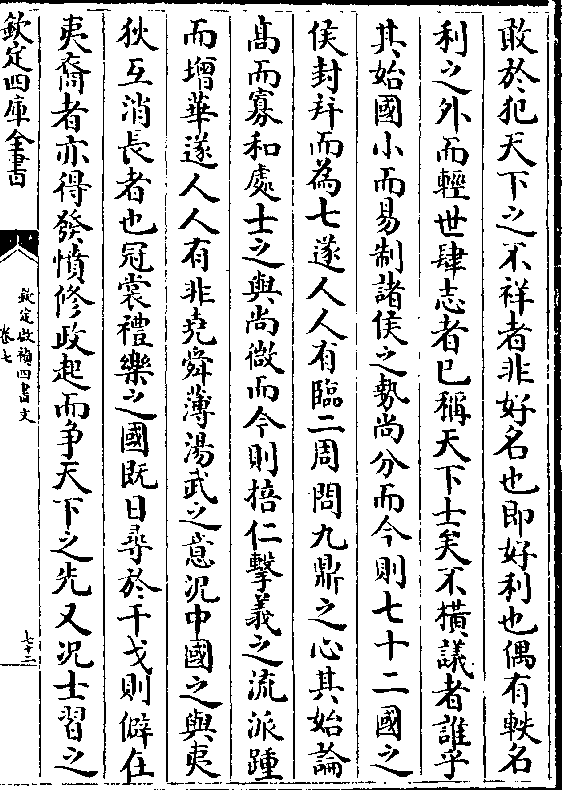 敢於犯天下之不祥者非好名也即好利也偶有軼名
利之外而輕世肆志者已稱天下士矣不橫議者誰乎
其始國小而易制諸侯之勢尚分而今則七十二國之
侯封并而為七遂人人有臨二周問九鼎之心其始論
髙而寡和處士之與尚微而今則掊仁擊義之流派踵
而增華遂人人有非堯舜薄湯武之意況中國之與夷
狄互消長者也冠裳禮樂之國既日尋於干戈則僻在
夷裔者亦得發憤修政起而争天下之先又況士習之
欽定四庫全書
欽定啟禎四書文
卷七
七十二